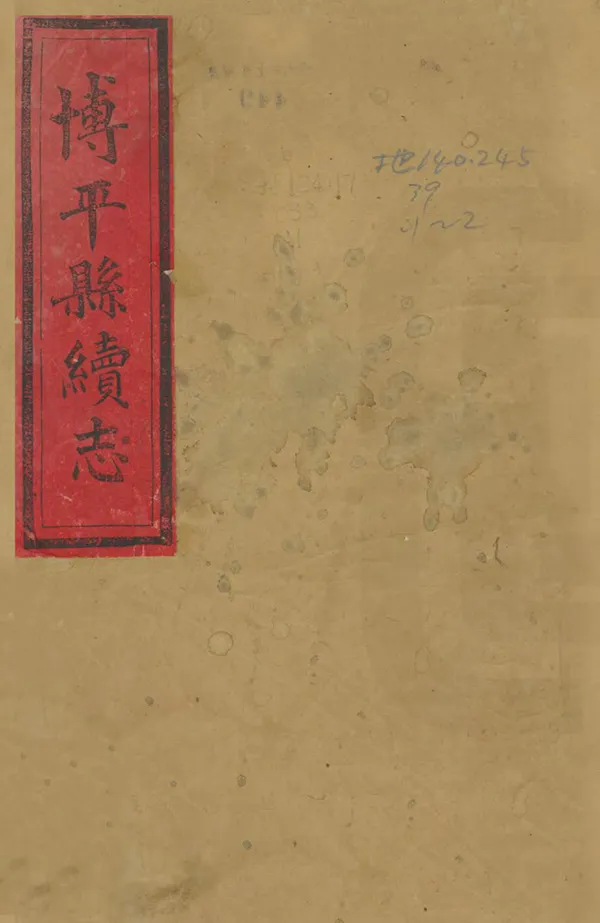 博平縣續志
地140.245
39